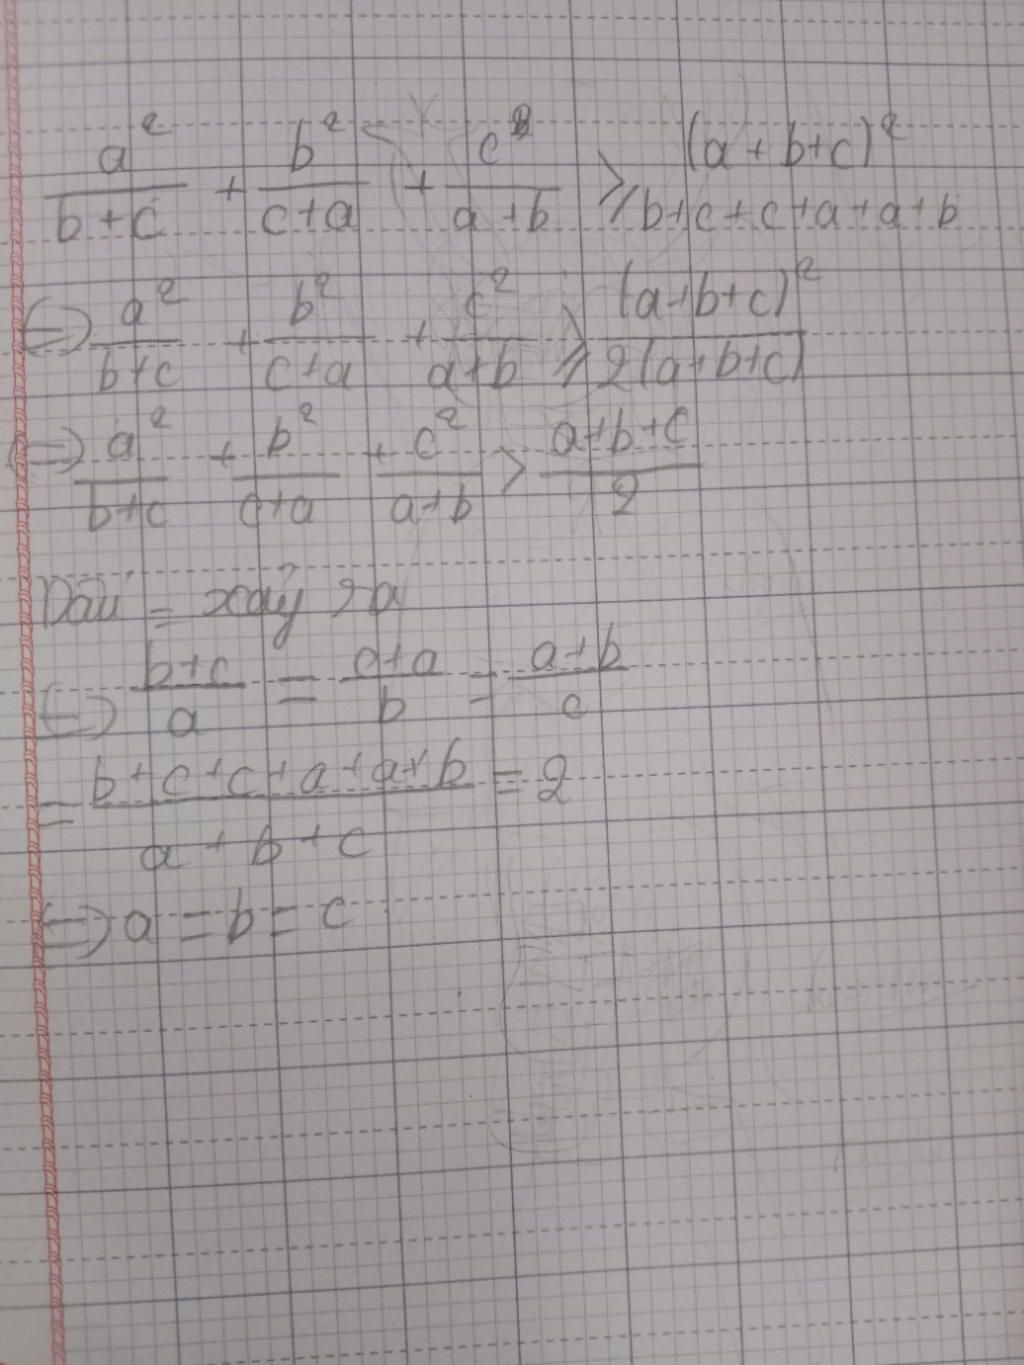 a²/(b+c) + b²/(c+a) + c²/(a+b) ⩾ (a+b+c)²/(b+c+c+a+a+b)
⇔ a²/(b+c) + b²/(c+a) + c²/(a+b) ⩾ (a+b+c)²/(2(a+b+c))
⇔ a²/(b+c) + b²/(c+a) + c²/(a+b) > (a+b+c)/2
Dấu = xảy ra
⇔ (b+c)/a = (c+a)/b = (a+b)/c
= (b+c+c+a+a+b)/(a+b+c) = 2
⇔ a = b = c